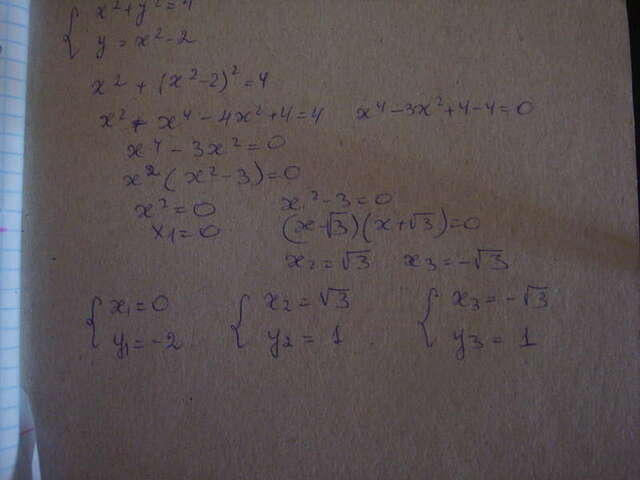 { x² + y² = 4
y = x² - 2
x² + (x² - 2)² = 4
x² + x⁴ - 4x² + 4 = 4 x⁴ - 3x² + 4 - 4 = 0
x⁴ - 3x² = 0
x² (x² - 3) = 0
x² = 0 x² - 3 = 0
x₁ = 0 (x - √3)(x + √3) = 0
x₂ = √3 x₃ = -√3
{ x₁ = 0 { x₂ = √3 { x₃ = -√3
y₁ = -2 y₂ = 1 y₃ = 1